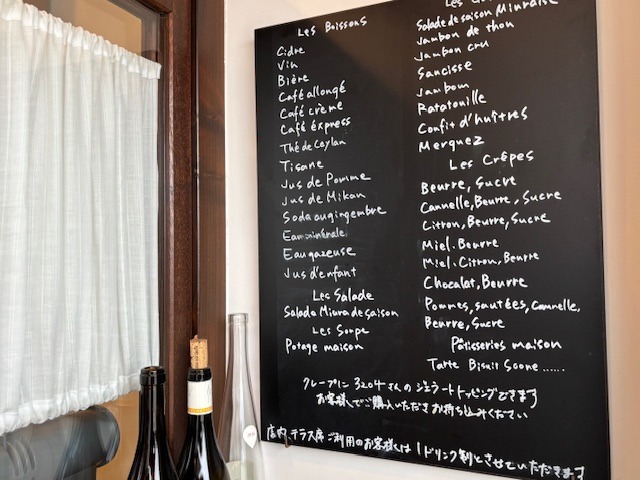 Les Boissons
Cidre
Vin
Bière
Café allongé
Café crème
Café éxpress
Thé de Ceylan
Tisane
Jus de Pomme
Jus de Mikan
Soda au gingembre
Eau minérale
Eau gazeuse
Jus d'enfant
Les Salade
Salada Miura de saison
Les Soupe
Potage maison
Les
Salade de saison Miuraise
Jambon de thon
Jambon cru
Saucisse
Jambon
Ratatouille
Confit d'huîtres
Merguez
Les Crêpes
Beurre, Sucre
Cannelle, Beurre, Sucre
Citron, Beurre, Sucre
Miel. Beurre
Miel. Citron, Beurre
Chocolat, Beurre
Pommes, sautées, Cannelle,
Beurre, Sucre
Pâtisseries maison
Tarte Bisuit Scone......
クレープリに 3204さんの ジェラートトッピングできます
お客様でご購入いただきお持ち込みください
店内、テラス席ご利用のお客様は1ドリンク制とさせていただきます